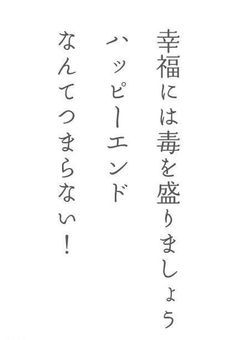 幸福には毒を盛りましょう
ハッピーエンド
なんてつまらない！